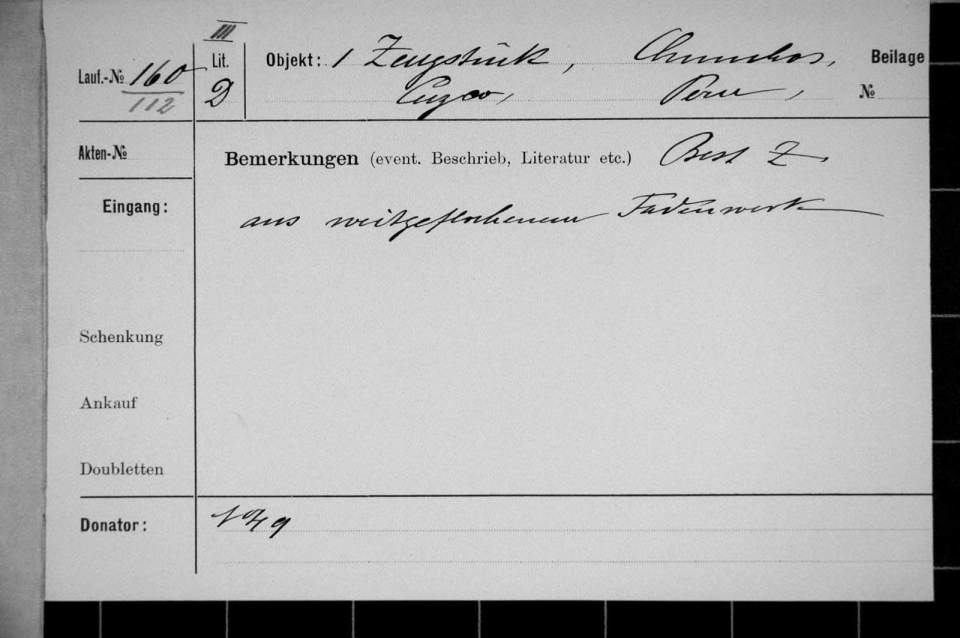 III
Lauf.-№ 160 Lit. Objekt: 1 Zeugstück, Beilage
112 D Cuzco, Peru, №
Akten-№
Bemerkungen (event. Beschrieb, Literatur etc.) Best Z.
Eingang:
aus weitgeflochenem Fadenwerk
Schenkung
Ankauf
Doubletten
Donator: